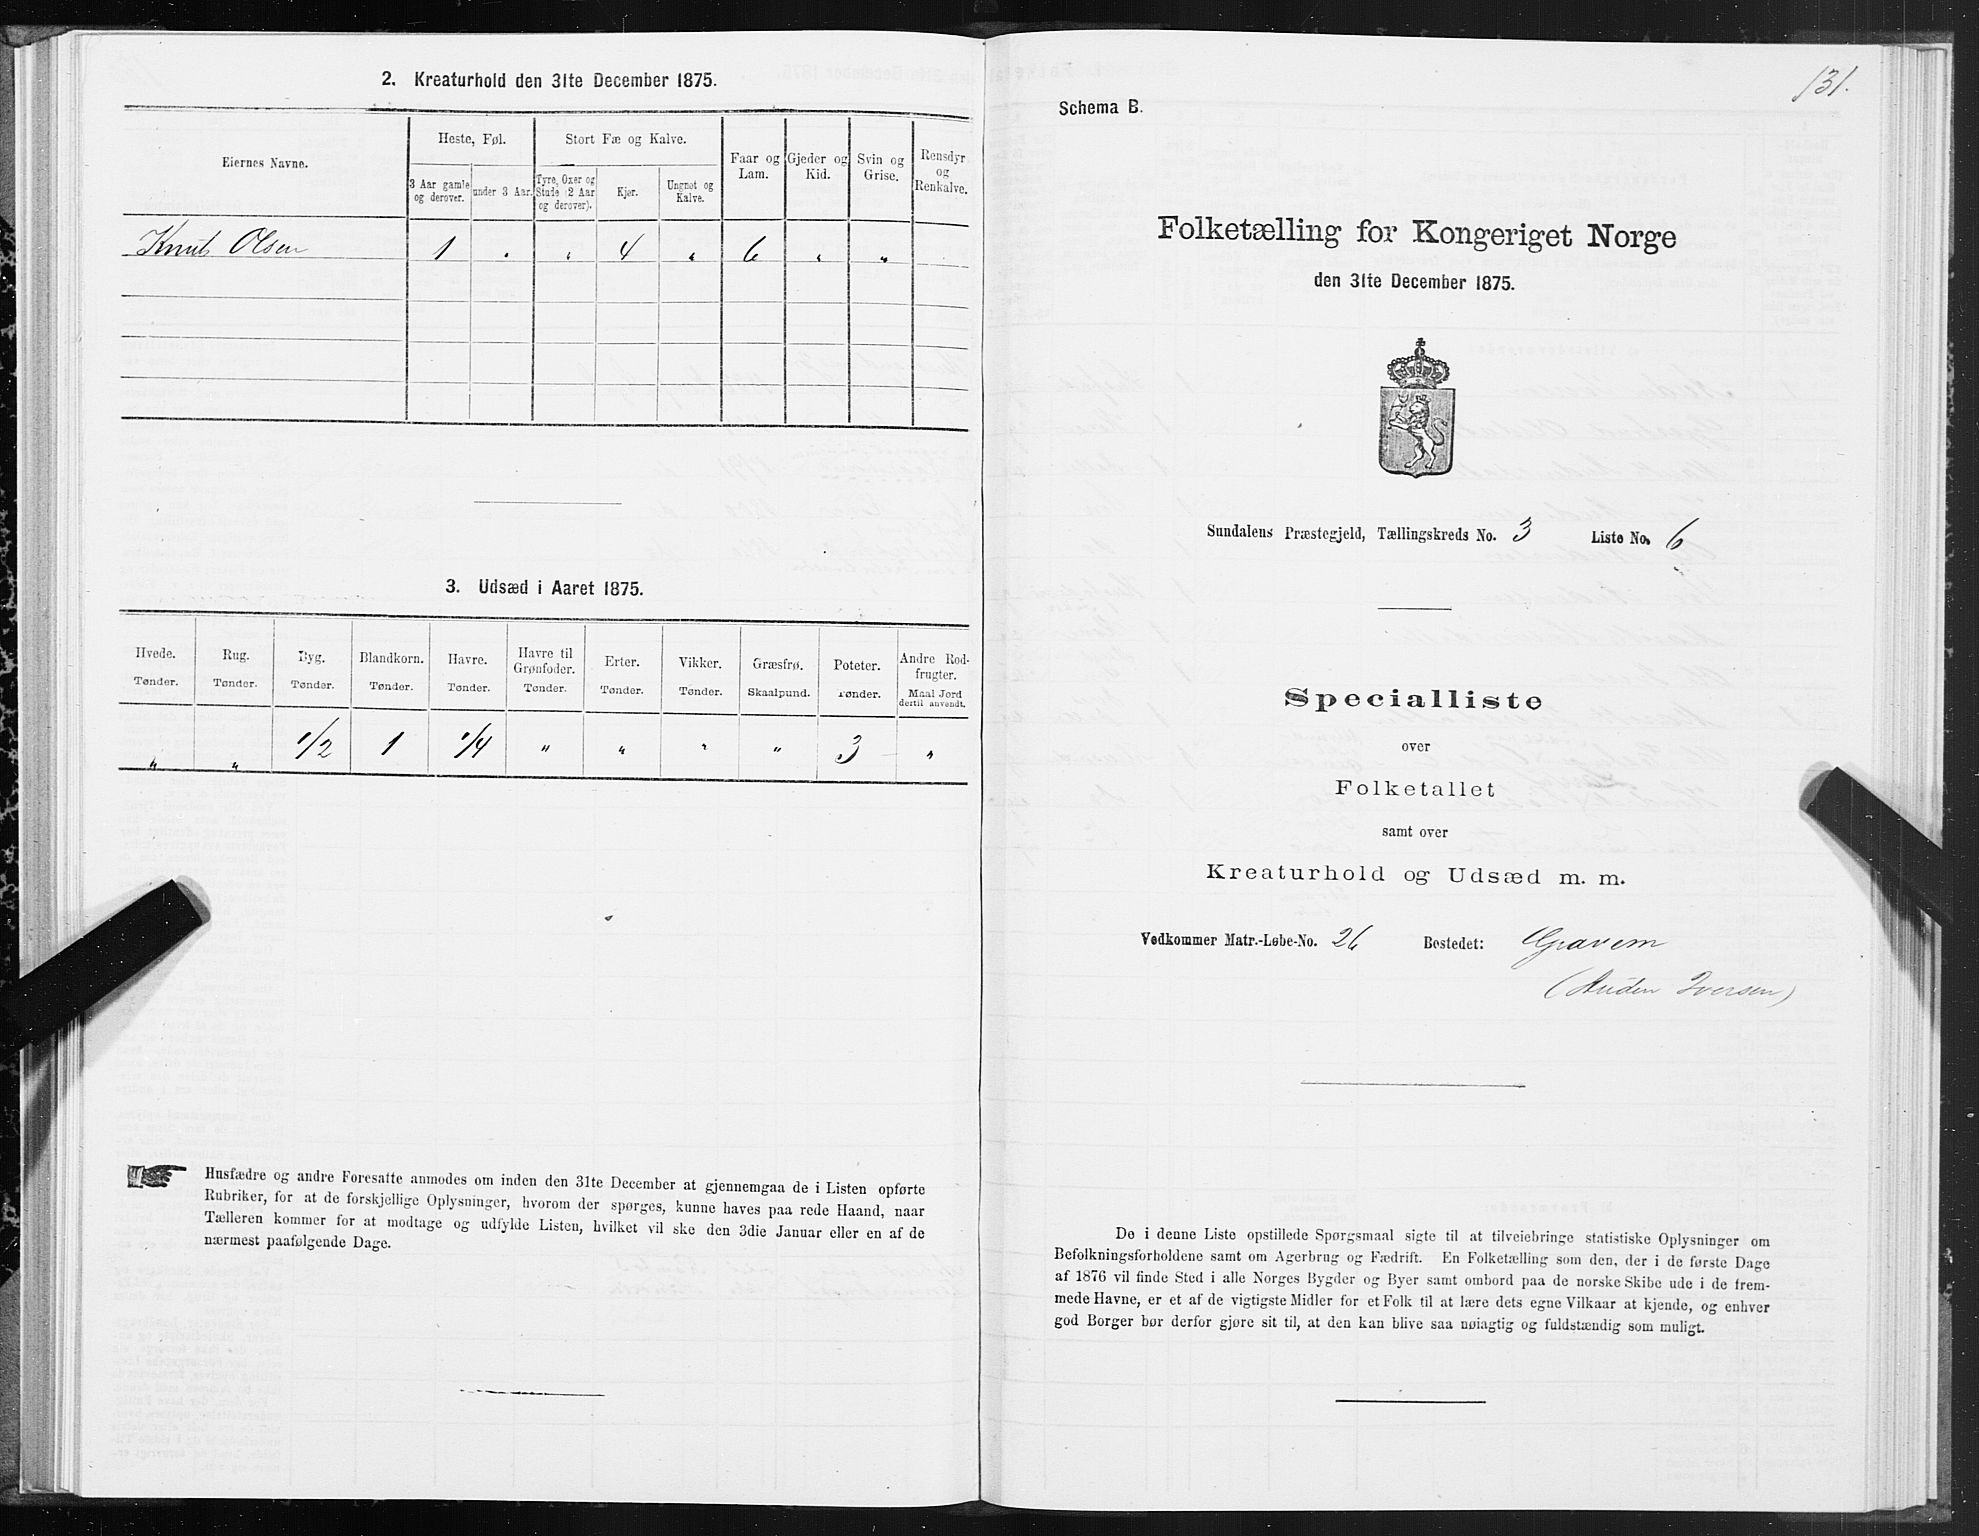 2. Kreaturhold den 31te December 1875.
Eiernes Navne.
Heste, Føl.
Stort Fæ og Kalve.
Faar og Lam.
Gjeder og Kid.
Svin og Grise.
Rensdyr og Renkalve.
3 Aar gamle og derover.
under 3 Aar.
Tyre, Oxer og Stude (2 Aar og derover).
Kjør.
Ungnøt og Kalve.
Knut Olsen 1 " " 4 " 6 " "
3. Udsæd i Aaret 1875.
Hvede. Rug. Byg. Blandkorn. Havre. Havre til Grønfoder. Erter. Vikker. Græsfrø. Poteter. Andre Rodfrugter.
Tønder. Tønder. Tønder. Tønder. Tønder. Tønder. Tønder. Tønder. Skaalpund. Tønder. Maal Jord dertil anvendt.
" " 1/2 1 1/4 " " " " 3 "
Husfædre og andre Foresatte anmodes om inden den 31te December at gjennemgaa de i Listen opførte
Rubriker, for at de forskjellige Oplysninger, hvorom der spørges, kunne haves paa rede Haand, naar
Tælleren kommer for at modtage og udfylde Listen, hvilket vil ske den 3die Januar eller en af de
nærmest paafølgende Dage.
131.
Schema B.
Folketælling for Kongeriget Norge
den 31te December 1875.
Sundalens Præstegjeld, Tællingskreds No. 3 Liste No. 6
Specialliste
over
Folketallet
samt over
Kreaturhold og Udsæd m. m.
Vedkommer Matr.-Løbe-No. 26 Bostedet: Gravem
(Auden Iversen)
De i denne Liste opstillede Spørgsmaal sigte til at tilveiebringe statistiske Oplysninger om
Befolkningsforholdene samt om Agerbrug og Fædrift. En Folketælling som den, der i de første Dage
af 1876 vil finde Sted i alle Norges Bygder og Byer samt ombord paa de norske Skibe ude i de frem-
mede Havne, er et af de vigtigste Midler for et Folk til at lære dets egne Vilkaar at kjende, og enhver
god Borger bør derfor gjøre sit til, at den kan blive saa nøiagtig og fuldstændig som muligt.